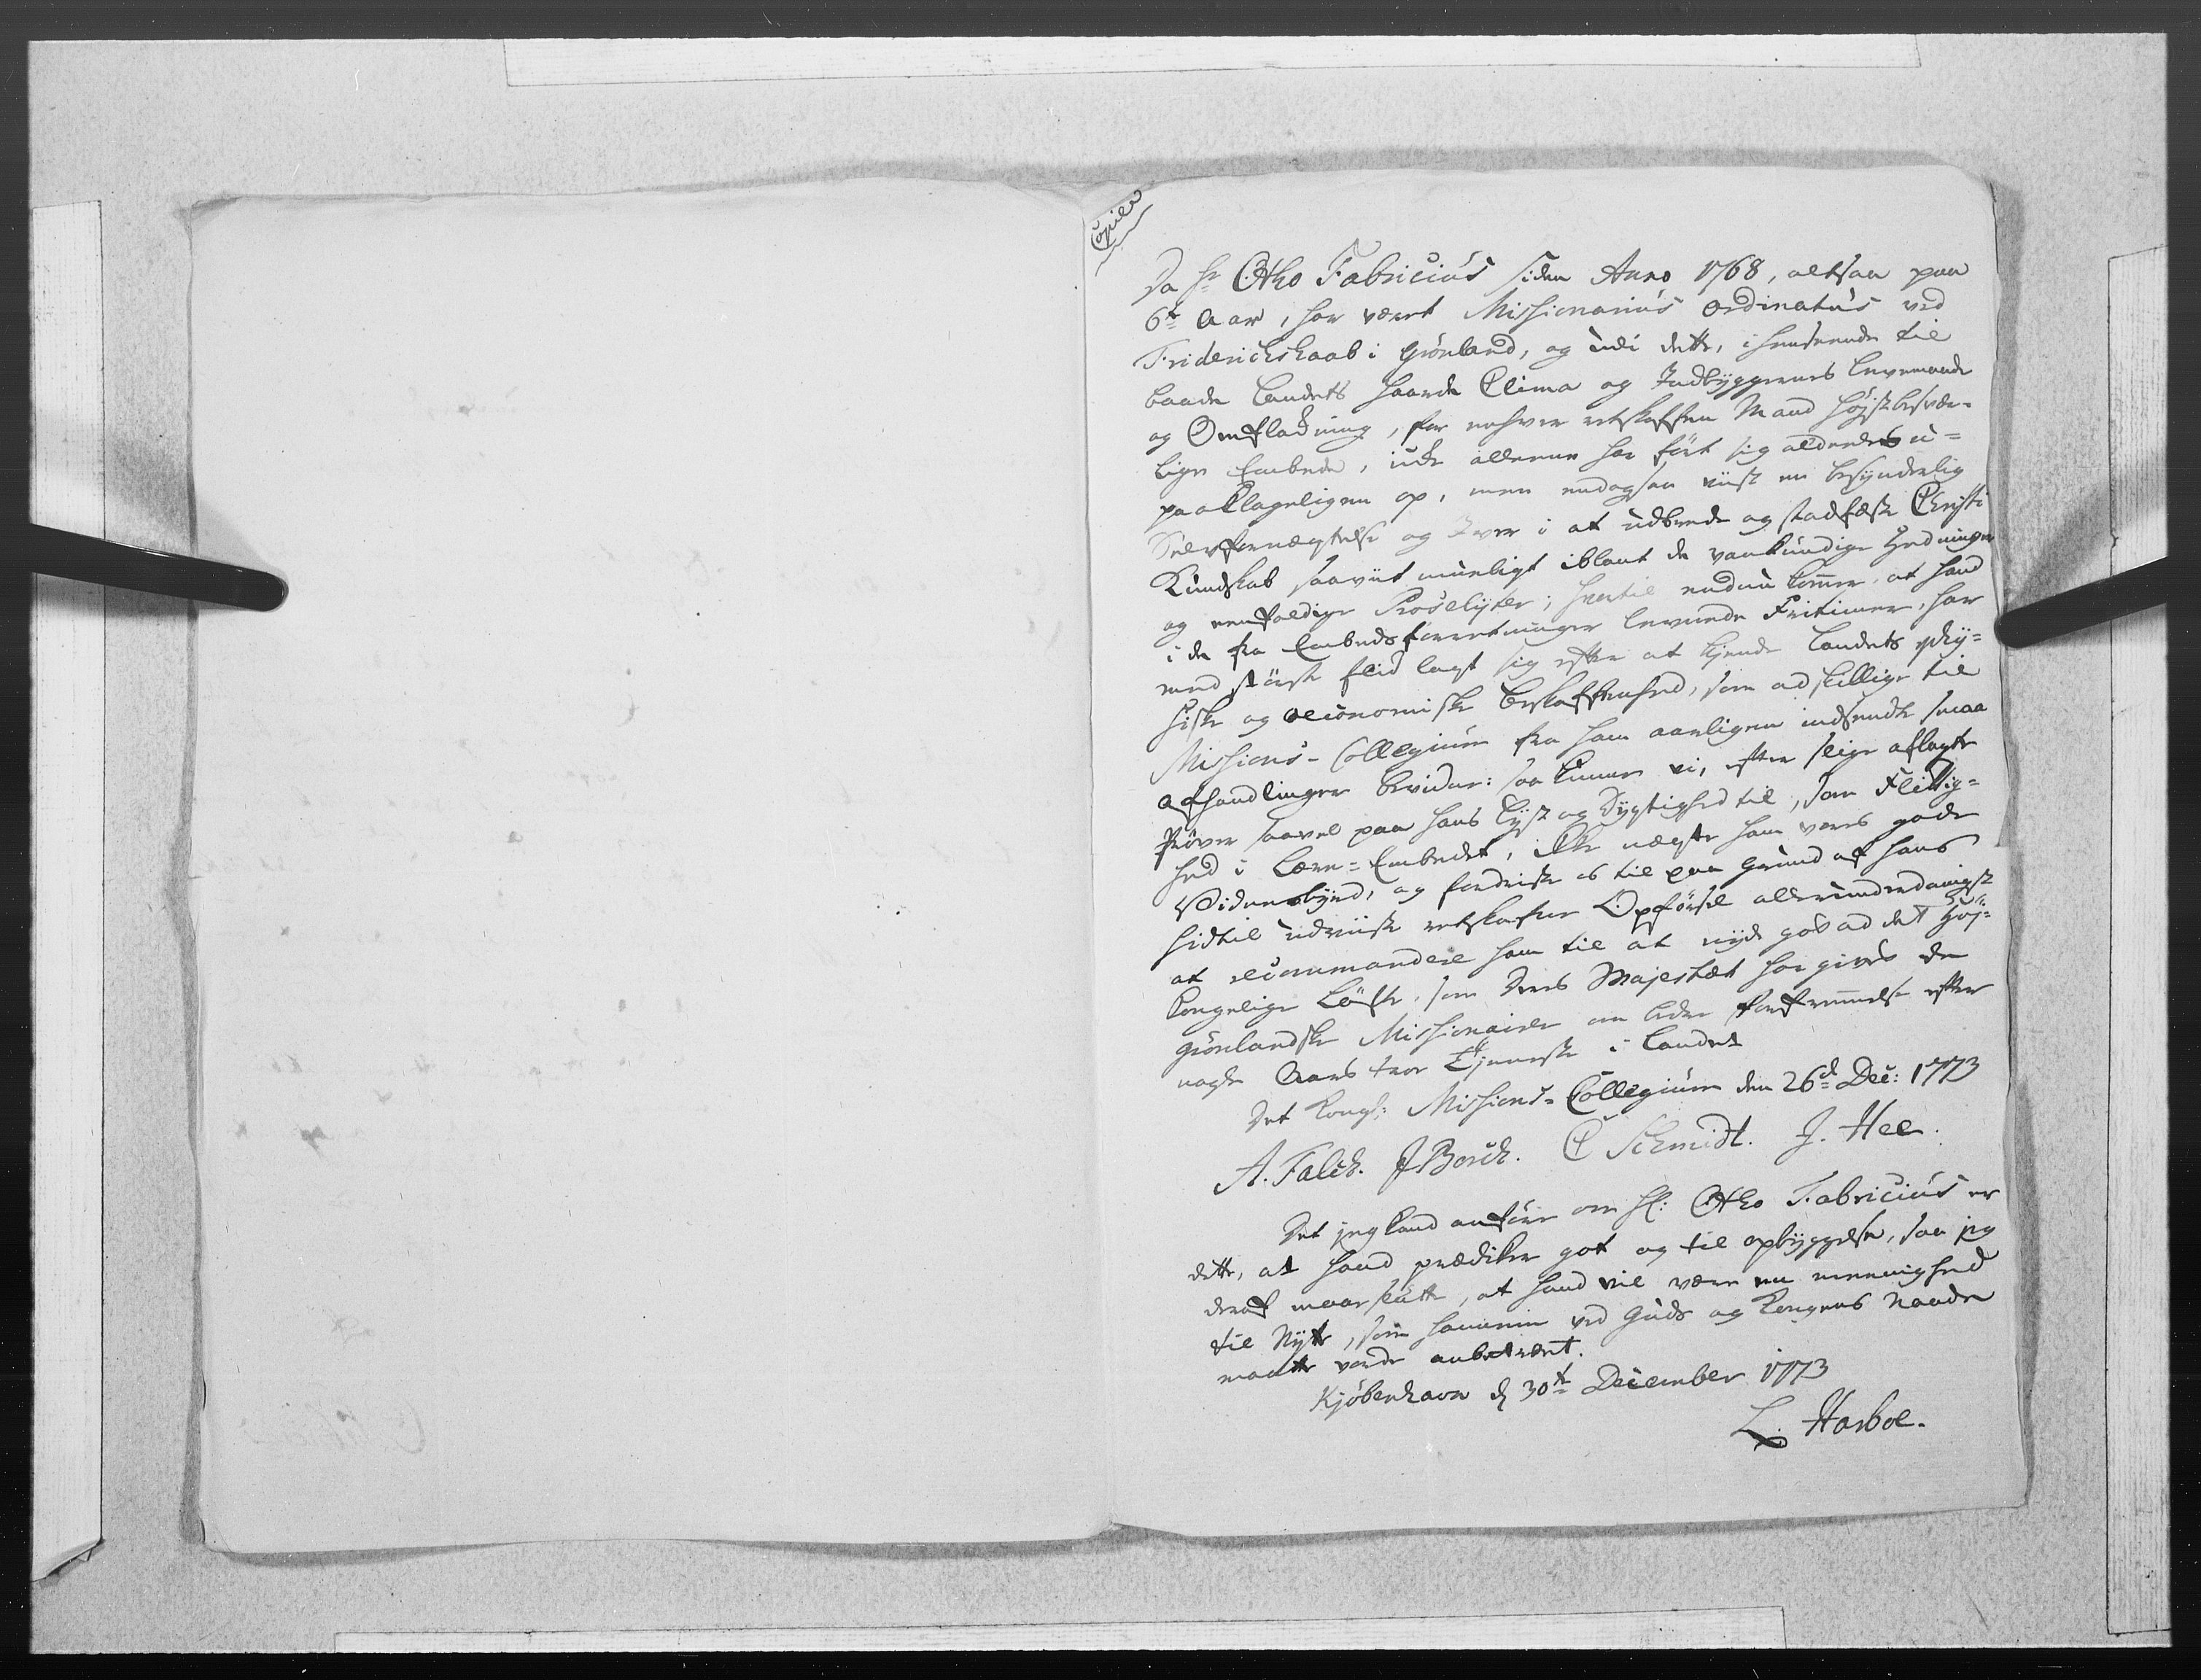 Copier
Da Hr Otho Fabricius siden Anno 1768, altsaa paa
6te Aar, har været Missionarius ordinatus ved
Friderichshaab i Grönland, og udi dette, i henseende til
baade Landets haarde Clima og Indbyggernes Levemaade
og Omflakning, for enhver retskaffen Mand höjstbesvær-
lige Embede, icke alleene har fört sig aldeeles u-
paaklageligen op, men endogsaa viist en besynderlig
Selvfornægtelse og Iver i at udbrede og stadfæste Christi
Kundskab saaviit mueligt iblant de vankundige Hedninger
og eenfoldige Proselyter; hertil endnu kommer, at hand
i de fra Embedsforretninger levnede Fritimer, har
med störste fliid lagt sig efter at kjende Landets phy-
siske og oeconomiske Beskaffenhed, som adskillige til
Missions-Collegium fra ham aarligen indsendte smaa
Afhandlinger bevidne: saa kunne vi, efter slige aflagte
Pröver saavel paa hans Lyst og Dygtighed til, som Flittig-
hed i Lære-Embedet, ikke nægte ham vores gode
Vidnesbyrd, og fordriste os til paa Grund af hans
hidtil udviiste retskafne Opförsel allerunderdanigst
at recommandere ham til at nyde got ad det Höj-
kongelige Löfte, som Deres Majestæt har givet de
grönlandske Missionairer om beder forfremmelse efter
nogle Aars troe Tjeneste i Landet
Det Kongl: Missions-Collegium den 26d Dec: 1773
A. Falck. J Borch. C Schmidt. J. Hee.
Det jeg kand anföre om Hr: Otho Fabricius er
dette, at hand prædiker got og til opbyggelse, saa jeg
deraf maae slutte, at hand vil være en meenighed
til Nytte, som hannem ved Guds og Kongens Naade
maatte vorde anbetroet.
Kjöbenhavn d 30te December 1773
L. Harboe.